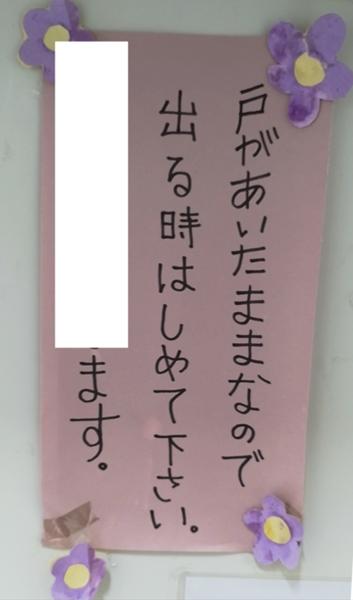 戸があいたままなので
出る時はしめて下さい。
ます。